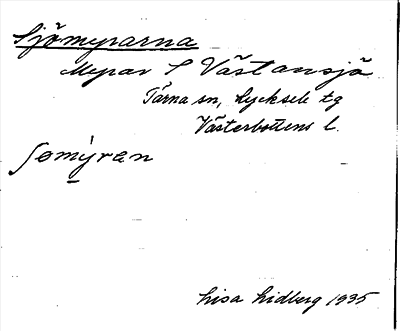 Sjömyrarna
Myrar S Västansjö
Tärna sn, Lycksele tg
Västerbottens l.
somýran
Lisa Lidberg 1935